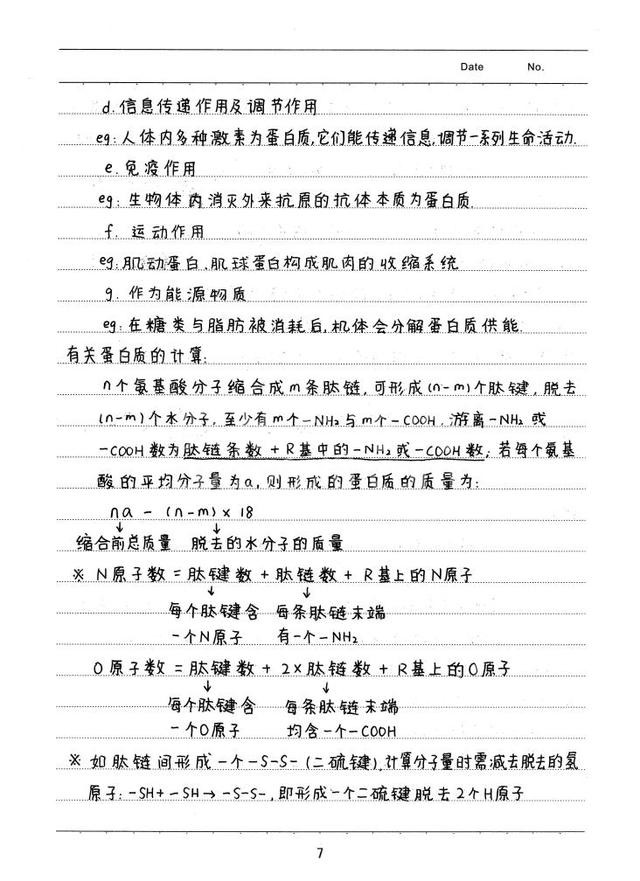 Date No.
d.信息传递作用及调节作用
eg:人体内多种激素为蛋白质,它们能传递信息,调节一系列生命活动.
e.免疫作用
eg:生物体内消灭外来抗原的抗体本质为蛋白质.
f.运动作用
eg:肌动蛋白、肌球蛋白构成肌肉的收缩系统
g.作为能源物质
eg:在糖类与脂肪被消耗后,机体会分解蛋白质供能.
有关蛋白质的计算:
n个氨基酸分子缩合成m条肽链,可形成(n-m)个肽键,脱去
(n-m)个水分子,至少有m个-NH₂与m个-COOH.游离-NH₂或
-COOH数为肽链条数+R基中的-NH₂或-COOH数;若每个氨基
酸的平均分子量为a,则形成的蛋白质的质量为:
na - (n-m)×18
↓ ↓
缩合前总质量 脱去的水分子的质量
※ N原子数=肽键数+肽链数+R基上的N原子
↓ ↓
每个肽键含 每条肽链末端
一个N原子 有一个-NH₂
O原子数=肽键数+2×肽链数+R基上的O原子
↓ ↓
每个肽键含 每条肽链末端
一个O原子 均含一个-COOH
※ 如肽链间形成一个-S-S-(二硫键),计算分子量时需减去脱去的氢
原子:-SH+-SH→-S-S-,即形成一个二硫键脱去2个H原子
7